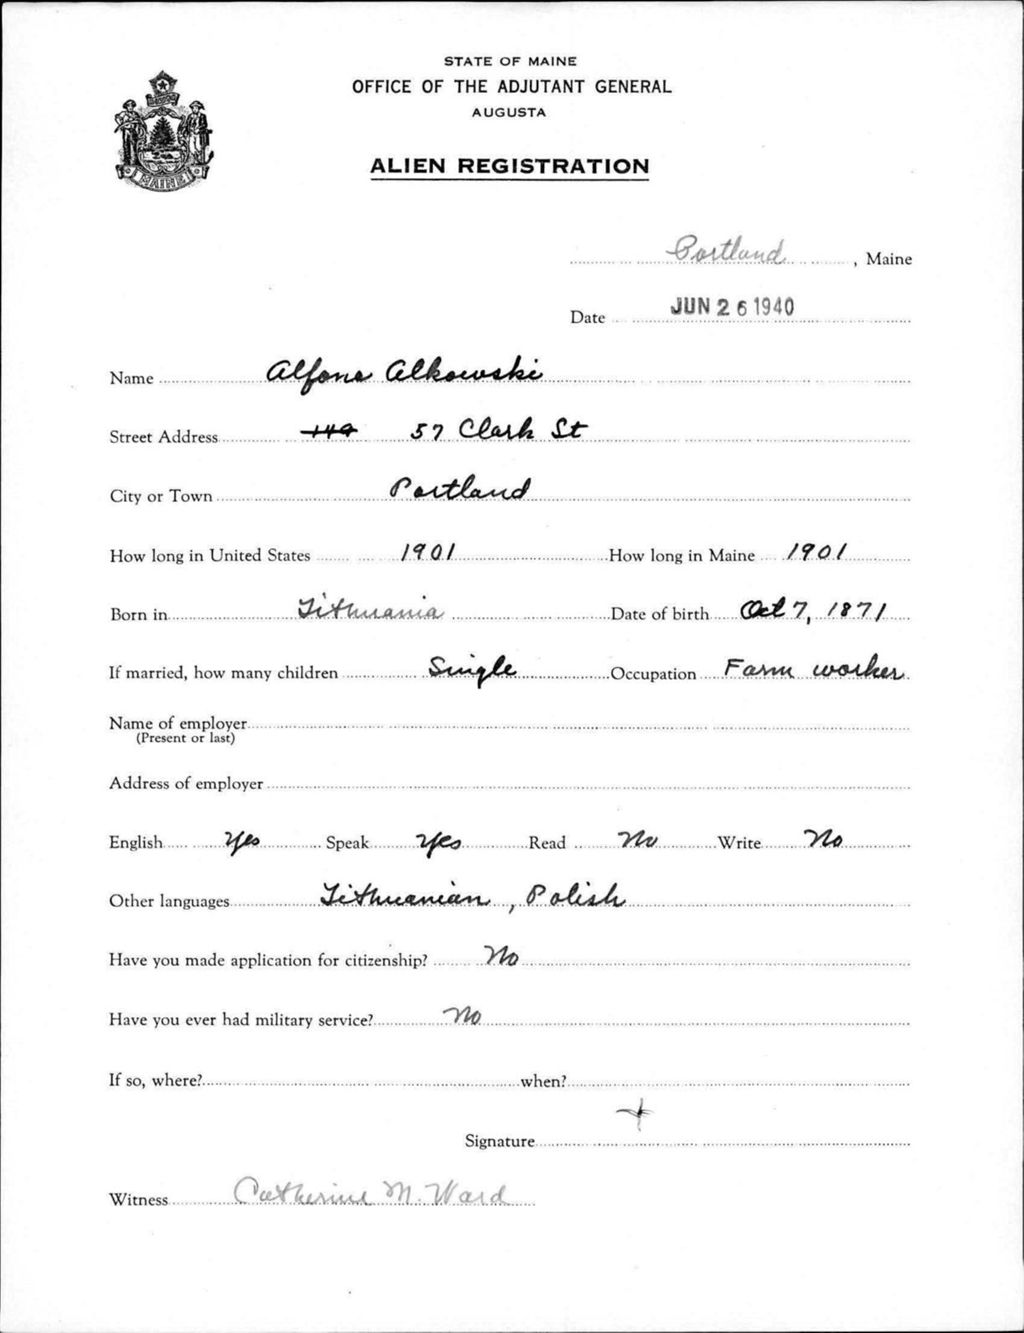 STATE OF MAINE
OFFICE OF THE ADJUTANT GENERAL
AUGUSTA
ALIEN REGISTRATION
MAINE
Portland, Maine
Date JUN 26 1940
Name Alfons Alkowski
Street Address 149 57 Clark St
City or Town Portland
How long in United States 1901 How long in Maine 1901
Born in Lithuania Date of birth Oct 7, 1871
If married, how many children Single Occupation Farm worker
Name of employer
(Present or last)
Address of employer
English Yes Speak Yes Read No Write No
Other languages Lithuanian, Polish
Have you made application for citizenship? No
Have you ever had military service? No
If so, where? when?
Signature +
Witness Catherine M. Ward